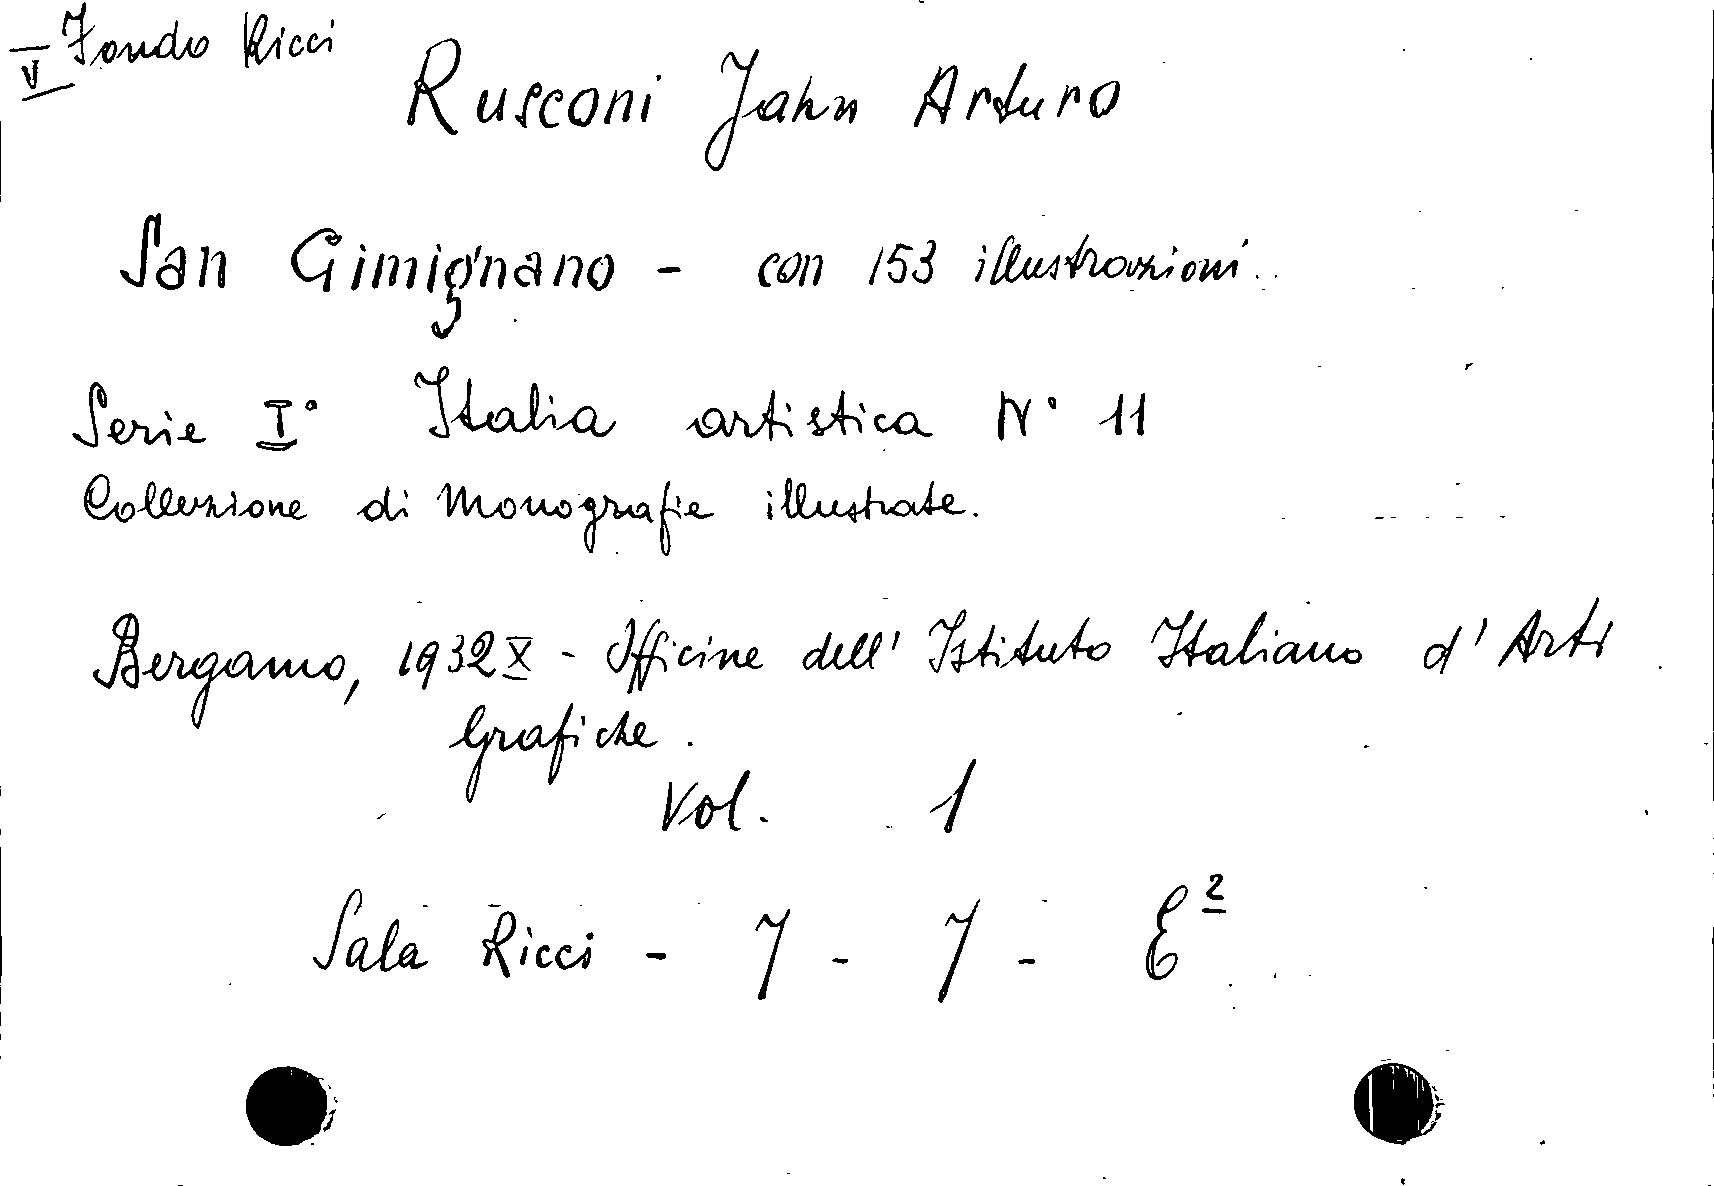 V Fondo Ricci
Rusconi Jahn Arturo
San Gimignano - con 153 illustrazioni.
Serie I° Italia artistica N° 11
Collezione di Monografie illustrate.
Bergamo, 1932 X - Officine dell' Istituto Italiano d' Arti
Grafiche.
Vol. 1
Sala Ricci - 7 - 7 - E²